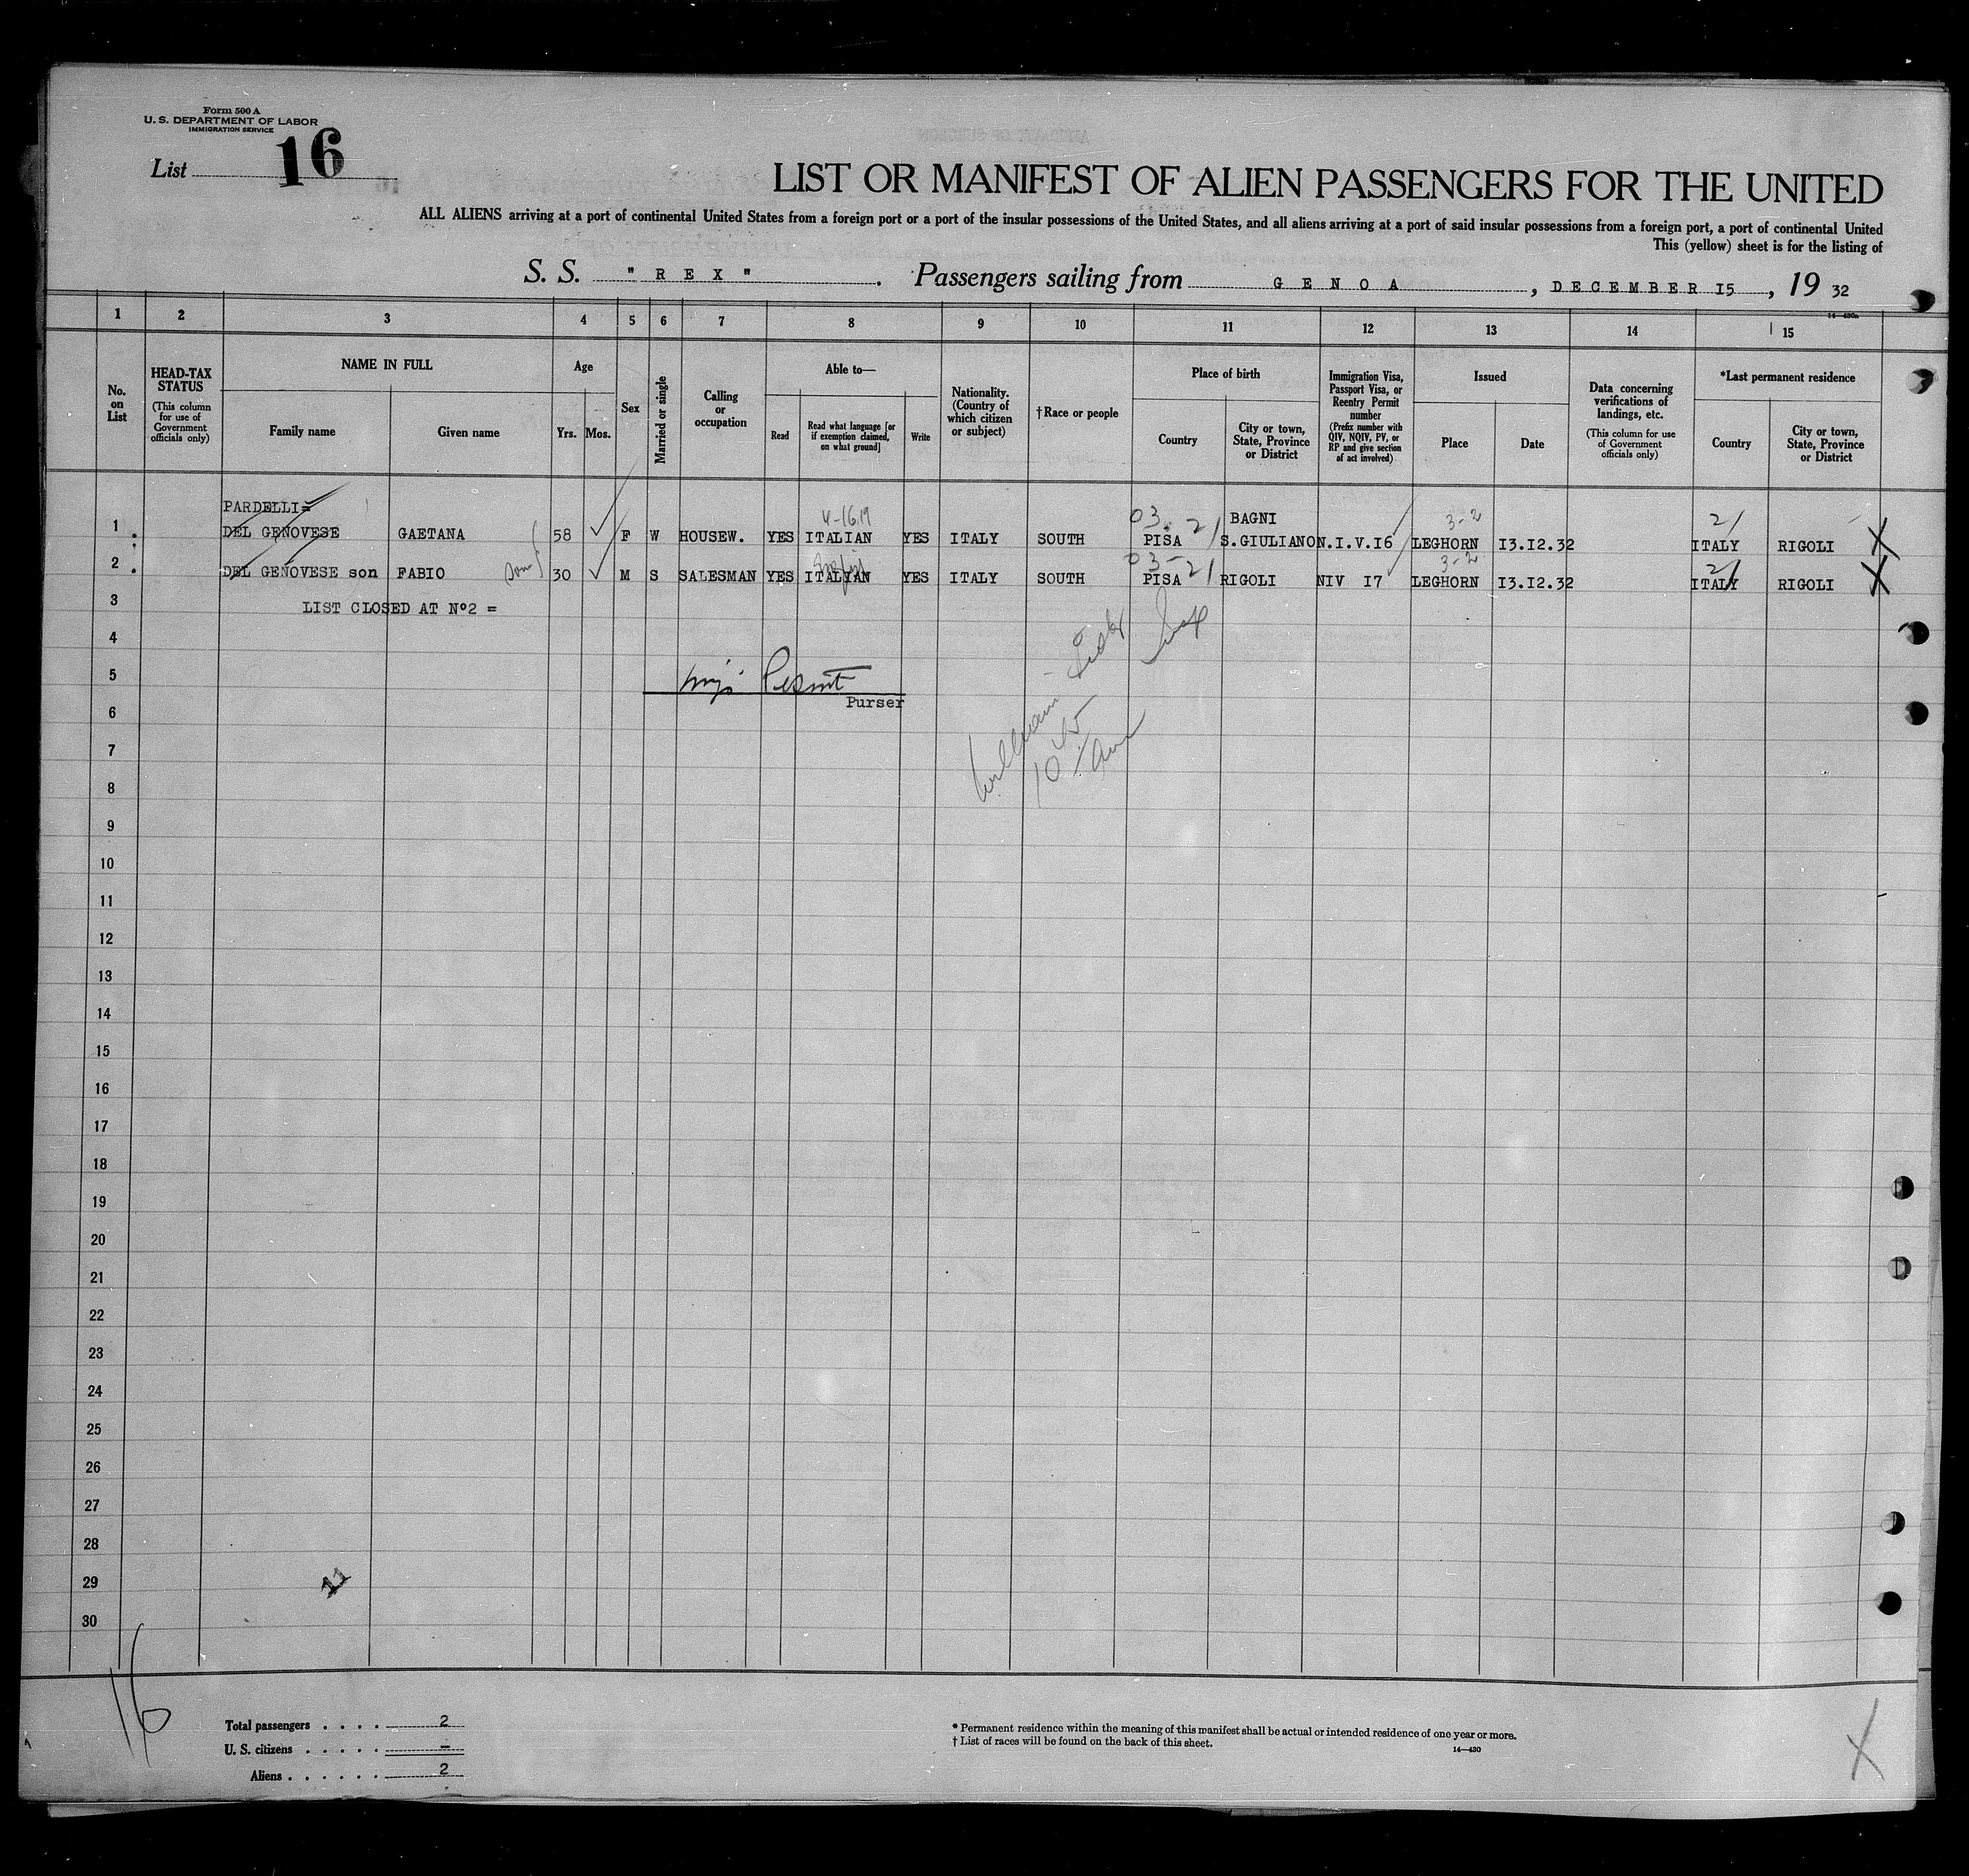 Form 500 A
U. S. DEPARTMENT OF LABOR
IMMIGRATION SERVICE
List 16
LIST OR MANIFEST OF ALIEN PASSENGERS FOR THE UNITED
ALL ALIENS arriving at a port of continental United States from a foreign port or a port of the insular possessions of the United States, and all aliens arriving at a port of said insular possessions from a foreign port, a port of continental United
This (yellow) sheet is for the listing of
S. S. " R E X " . Passengers sailing from G E N O A , DECEMBER I5 , 19 32
14—430a
1 2 3 4 5 6 7 8 9 10 11 12 13 14 15
No. on List
HEAD-TAX STATUS
(This column for use of Government officials only)
NAME IN FULL
Family name Given name
Age
Yrs. Mos.
Sex
Married or single
Calling or occupation
Able to—
Read
Read what language [or if exemption claimed, on what ground]
Write
Nationality. (Country of which citizen or subject)
† Race or people
Place of birth
Country
City or town, State, Province or District
Immigration Visa, Passport Visa, or Reentry Permit number
(Prefix number with QIV, NQIV, PV, or RP and give section of act involved)
Issued
Place Date
Data concerning verifications of landings, etc.
(This column for use of Government officials only)
*Last permanent residence
Country
City or town, State, Province or District
PARDELLI= 4-1619 03. 21 BAGNI 3-2 21
1 DEL GENOVESE GAETANA 58 F W HOUSEW. YES ITALIAN YES ITALY SOUTH PISA S.GIULIANO N.I.V.I6 LEGHORN I3.I2.32 ITALY RIGOLI X
English 03- 21 3-2 21
2 DEL GENOVESE son FABIO son 30 M S SALESMAN YES ITALYAN YES ITALY SOUTH PISA RIGOLI NIV I7 LEGHORN I3.I2.32 ITALY RIGOLI X
3 LIST CLOSED AT Nº2 =
4
5
Purser
6
William
7
10
8
9
10
11
12
13
14
15
16
17
18
19
20
21
22
23
24
25
26
27
28
29
30
16
Total passengers . . . . 2
U. S. citizens . . . . . —
Aliens . . . . . . 2
* Permanent residence within the meaning of this manifest shall be actual or intended residence of one year or more.
† List of races will be found on the back of this sheet.
14—430
X